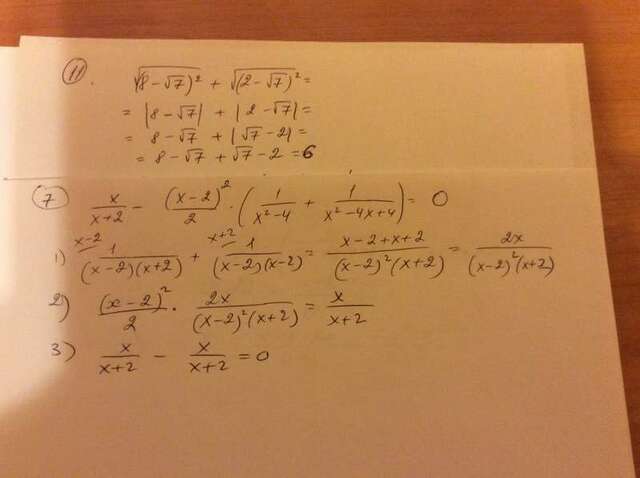 11.
√(8 − √7)² + √(2 − √7)² =
= |8 − √7| + |2 − √7| =
= 8 − √7 + |√7 − 2| =
= 8 − √7 + √7 − 2 = 6
7 x/(x+2) − (x−2)²/2 · (1/(x²−4) + 1/(x²−4x+4)) = 0
x−2 x+2
1) 1/((x−2)(x+2)) + 1/((x−2)(x−2)) = (x−2+x+2)/((x−2)²(x+2)) = 2x/((x−2)²(x+2))
2) (x−2)²/2 · 2x/((x−2)²(x+2)) = x/(x+2)
3) x/(x+2) − x/(x+2) = 0